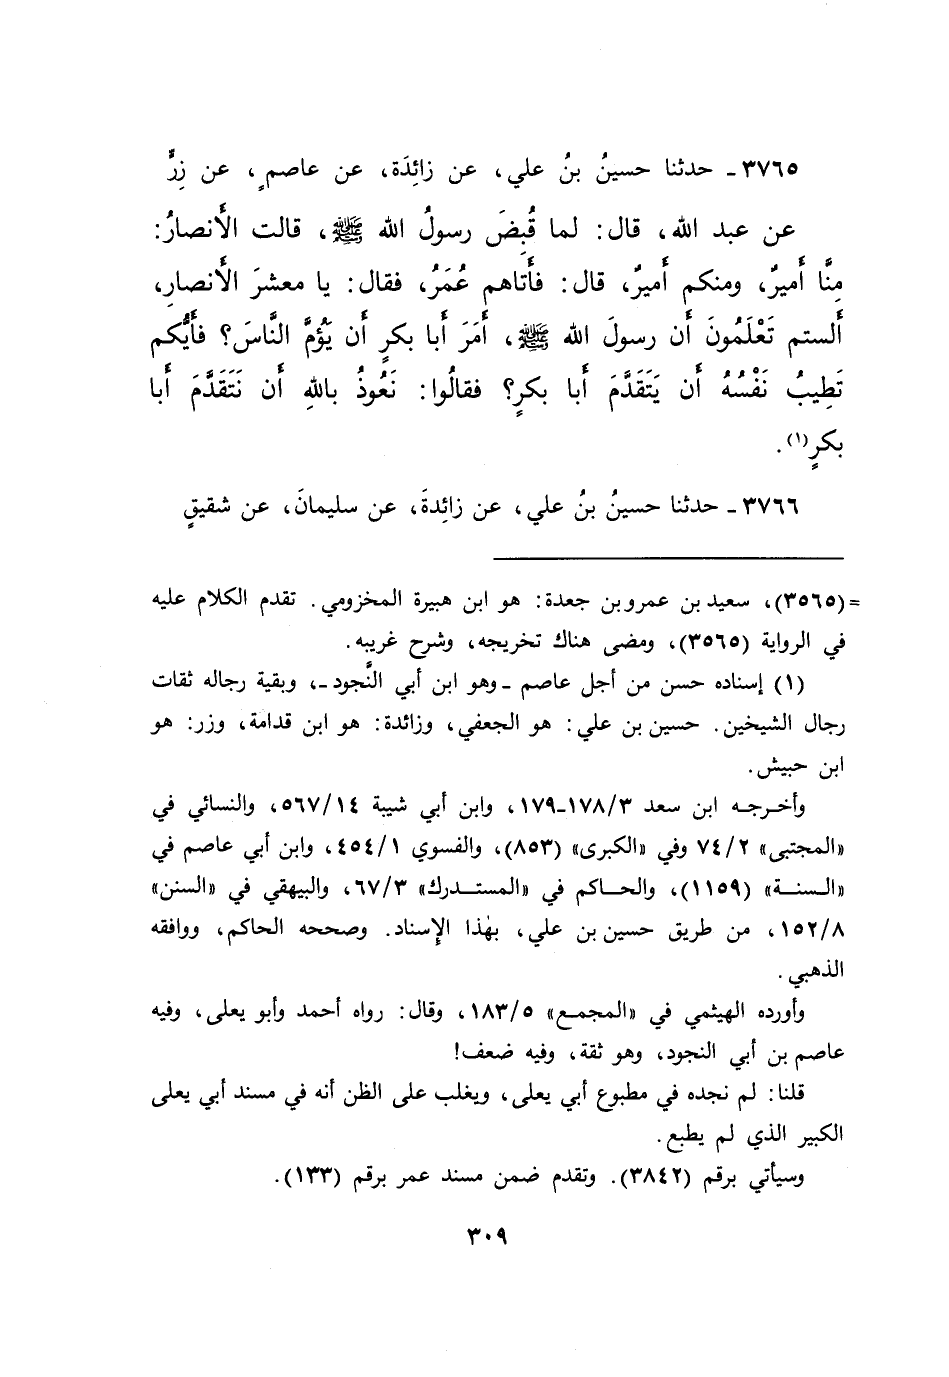 ٣٧٦٥ـ حدثنا حسينُ بنُ علي، عن زائِدَة، عن عاصمٍ، عن زِرٍّ
عن عبد الله، قال: لما قُبِضَ رسولُ الله ﷺ، قالت الأَنصارُ:
مِنَّا أَميرٌ، ومنكم أَميرٌ، قال: فأَتاهم عُمَرُ، فقال: يا معشرَ الأَنصارِ،
أَلستم تَعْلَمُونَ أَن رسولَ الله ﷺ، أَمَرَ أَبا بكرٍ أَن يَؤُمَّ النَّاسَ؟ فأَيُّكم
تَطِيبُ نَفْسُهُ أَن يَتَقَدَّمَ أَبا بكرٍ؟ فقالُوا: نَعُوذُ باللهِ أَن نَتَقَدَّمَ أَبا
بكرٍ(١).
٣٧٦٦ـ حدثنا حسينُ بنُ علي، عن زائِدةَ، عن سليمانَ، عن شقيقٍ
=(٣٥٦٥)، سعيد بن عمرو بن جعدة: هو ابن هبيرة المخزومي. تقدم الكلام عليه
في الرواية (٣٥٦٥)، ومضى هناك تخريجه، وشرح غريبه.
(١) إسناده حسن من أجل عاصم ـ وهو ابن أبي النَّجود ـ، وبقية رجاله ثقات
رجال الشيخين. حسين بن علي: هو الجعفي، وزائدة: هو ابن قدامة، وزر: هو
ابن حبيش.
وأخرجه ابن سعد ١٧٨/٣ـ١٧٩، وابن أبي شيبة ٥٦٧/١٤، والنسائي في
«المجتبى» ٧٤/٢ وفي «الكبرى» (٨٥٣)، والفسوي ٤٥٤/١، وابن أبي عاصم في
«السنة» (١١٥٩)، والحاكم في «المستدرك» ٦٧/٣، والبيهقي في «السنن»
١٥٢/٨، من طريق حسين بن علي، بهٰذا الإِسناد. وصححه الحاكم، ووافقه
الذهبي.
وأورده الهيثمي في «المجمع» ١٨٣/٥، وقال: رواه أحمد وأبو يعلى، وفيه
عاصم بن أبي النجود، وهو ثقة، وفيه ضعف!
قلنا: لم نجده في مطبوع أبي يعلى، ويغلب على الظن أنه في مسند أبي يعلى
الكبير الذي لم يطبع.
وسيأتي برقم (٣٨٤٢). وتقدم ضمن مسند عمر برقم (١٣٣).
٣٠٩